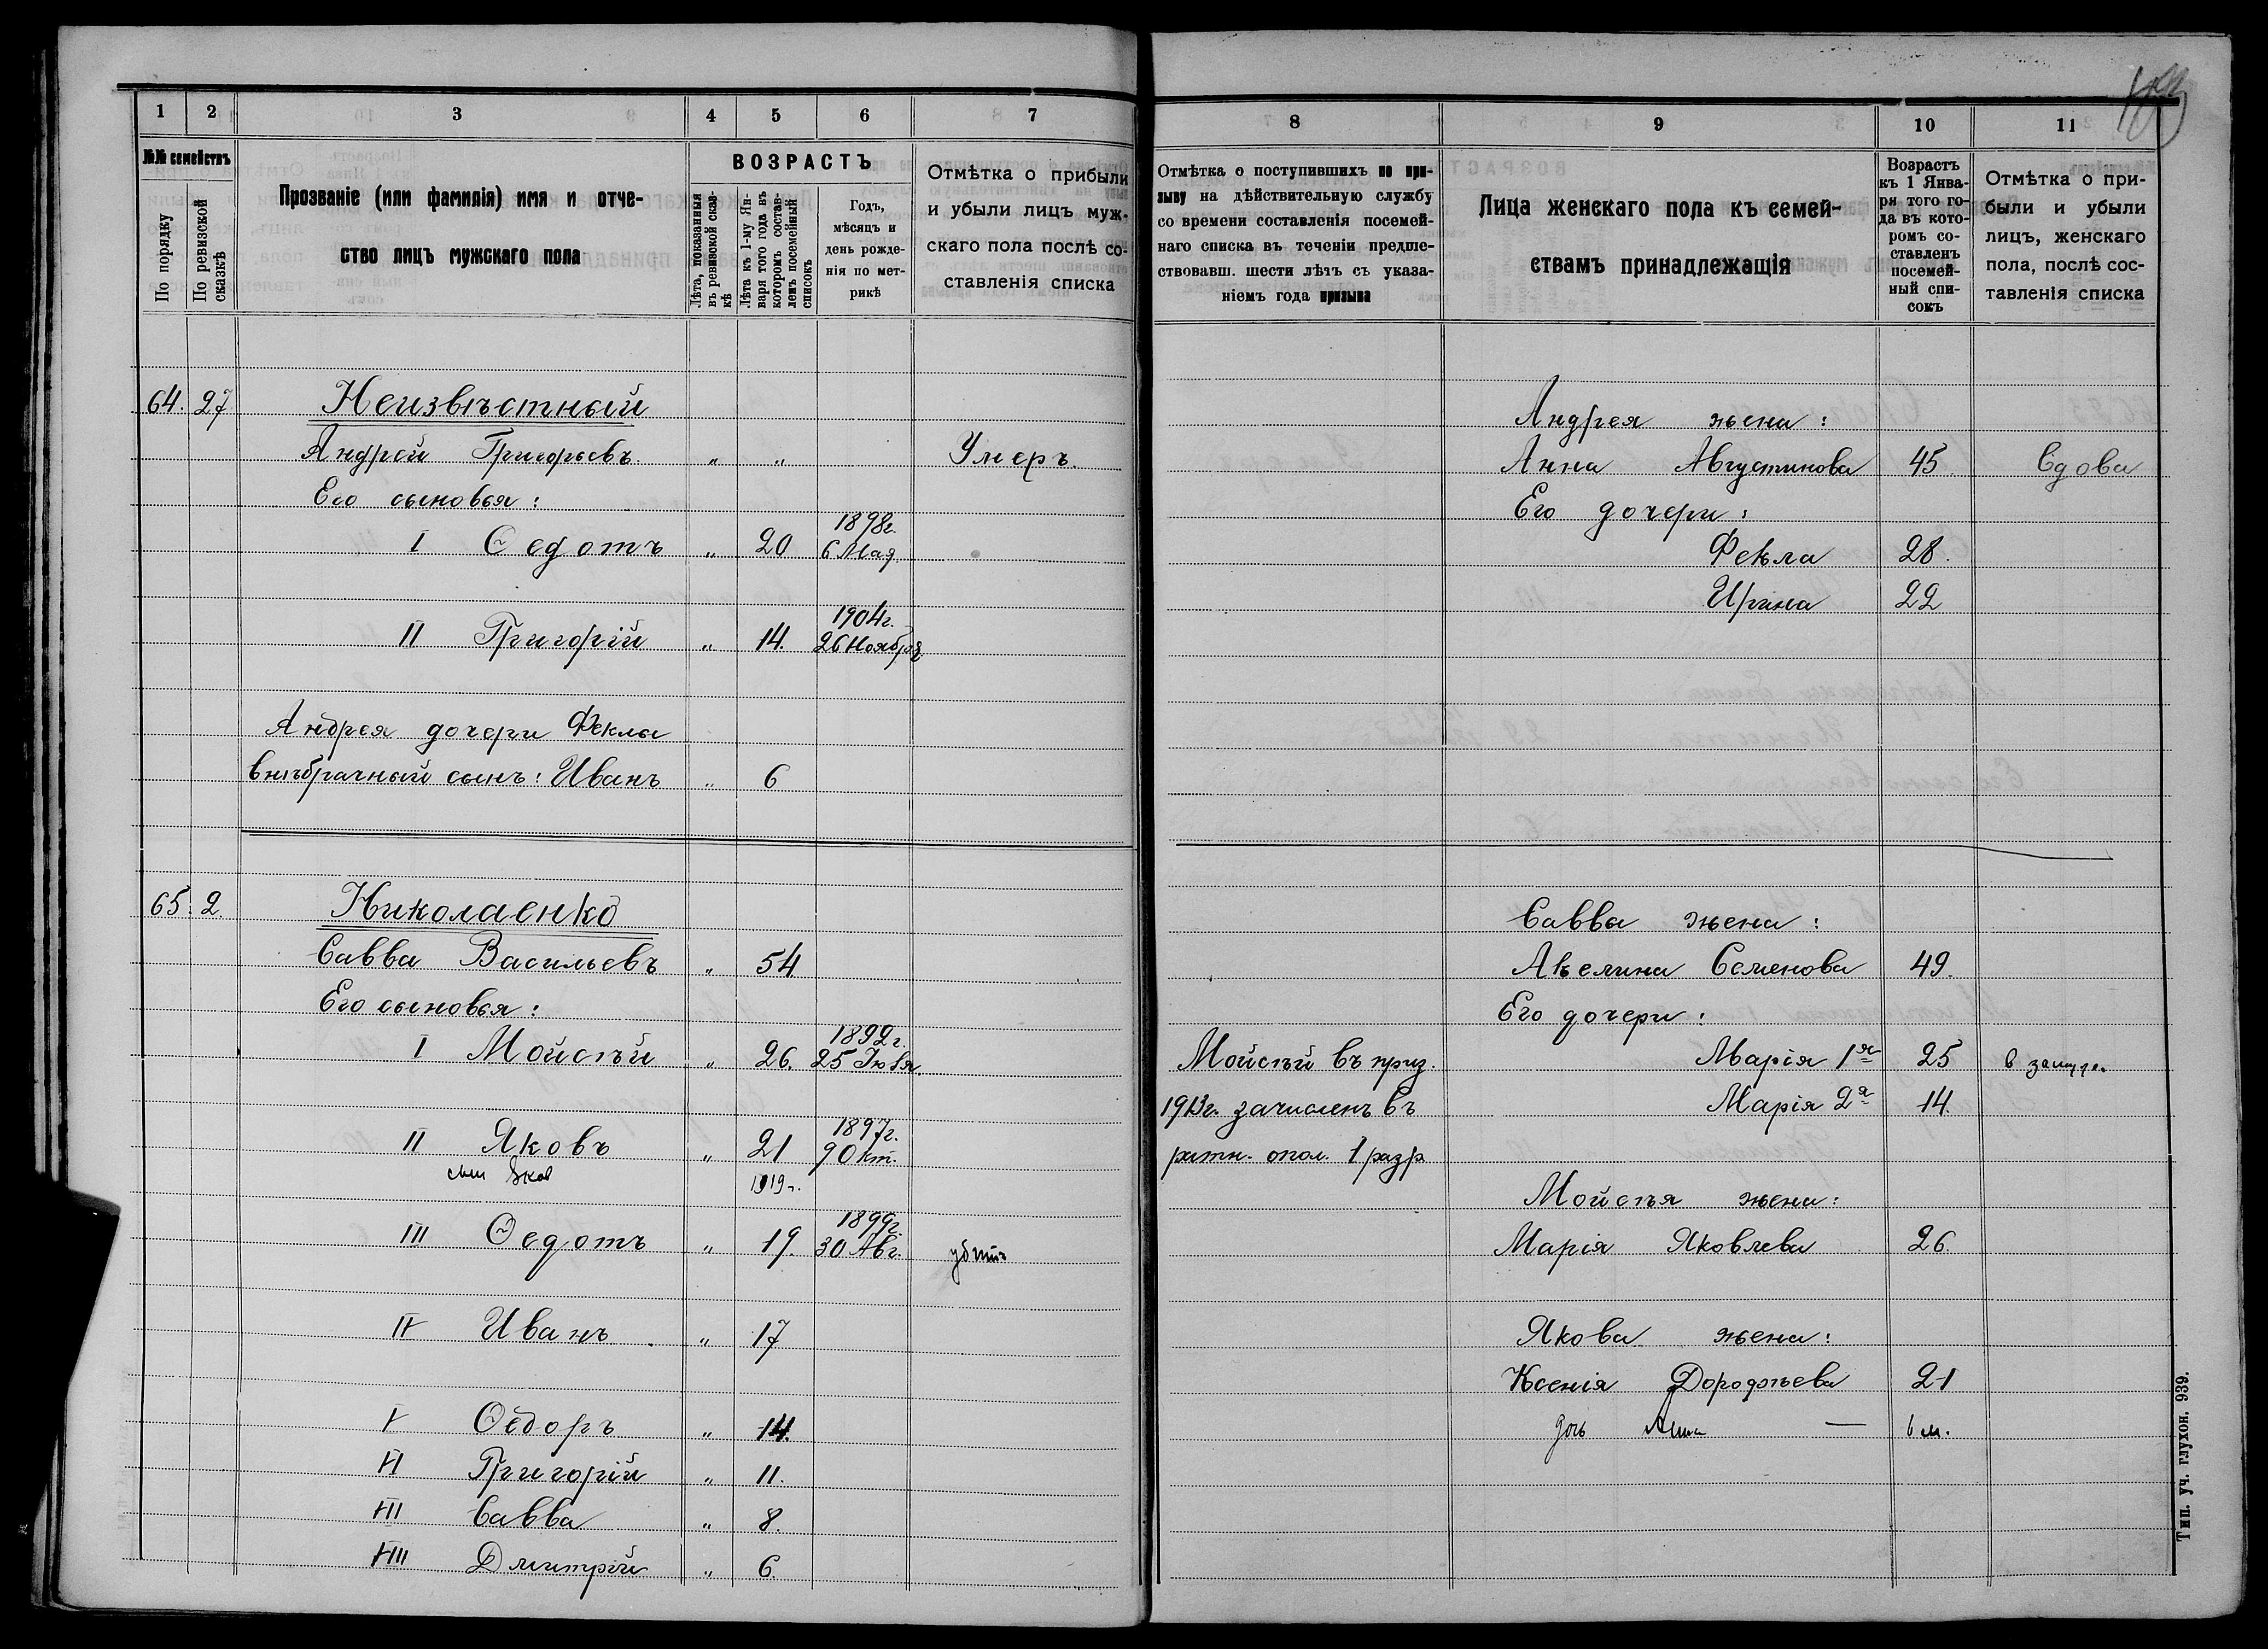 1 2 3 4 5 6 7
№№ семействъ
По порядку
По ревизской сказкѣ
Прозваніе (или фамилія) имя и отче-
ство лицъ мужского пола
ВОЗРАСТЪ
Лѣта, показанныя
въ ревизской сказ-
кѣ
Лѣта къ 1-му Ян-
варя того года въ
которомъ состав-
ленъ посемейный
списокъ
Годъ,
мѣсяцъ и
день рожде-
нія по мет-
рикѣ
Отмѣтка о прибыли
и убыли лицъ муж-
скаго пола послѣ со-
ставленія списка
64. 27 Неизвѣстный
Андрей Григорьевъ „ „ Умеръ.
Его сыновья:
I Ѳедотъ „ 20 1898г.
6 Мая
II Григорій „ 14. 1904г.
26 Ноября
Андрея дочери Феклы
внѣбрачный сынъ: Иванъ „ 6
65. 2 Николаенко
Савва Васильевъ „ 54
Его сыновья:
I Мойсѣй „ 26. 1892г.
25 Іюля.
II Яковъ „ 21 1897г.
9 Окт.
сын Яков 1919г.
III Ѳедотъ „ 19. 1899г.
30 Авг. убитъ
IV Иванъ „ 17
V Ѳедоръ „ 14.
VI Григорій „ 11.
VII Савва „ 8.
VIII Дмитрій „ 6.
8 9 10 11
Отмѣтка о поступившихъ по при-
зыву на дѣйствительную службу
со времени составленія посемей-
наго списка въ теченіи предше-
ствовавш. шести лѣтъ съ указа-
ніемъ года призыва
Лица женскаго пола къ семей-
ствамъ принадлежащія
Возрастъ
къ 1 Янва-
ря того го-
да въ кото-
ромъ со-
ставленъ
посемей-
ный спи-
сокъ
Отмѣтка о при-
были и убыли
лицъ, женскаго
пола, послѣ сос-
тавленія списка
Андрея жена:
Анна Августинова 45 Вдова
Его дочери:
Фекла 28.
Ирина 22
Савва жена:
Акелина Семенова 49.
Его дочери:
Мойсѣй въ приз. Марія 1я 25 в замуже.
1913г. зачисленъ въ Марія 2я 14.
ратн. опол. 1 разр
Мойсѣя жена:
Марія Яковлева 26.
Якова жена:
Ксенія Дорофѣева 21
дочь Анна — 6 м.
Тип. уч. глухон. 939.